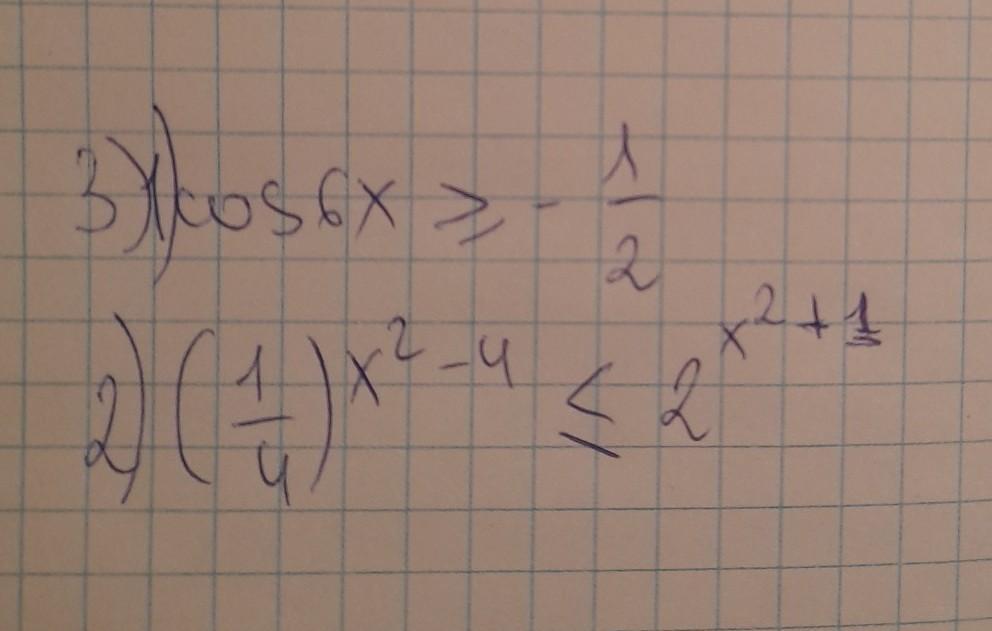 3) 1) cos 6x ⩾ - 1/2
2) (1/4)^(x^2 - 4) ≤ 2^(x^2 + 1)